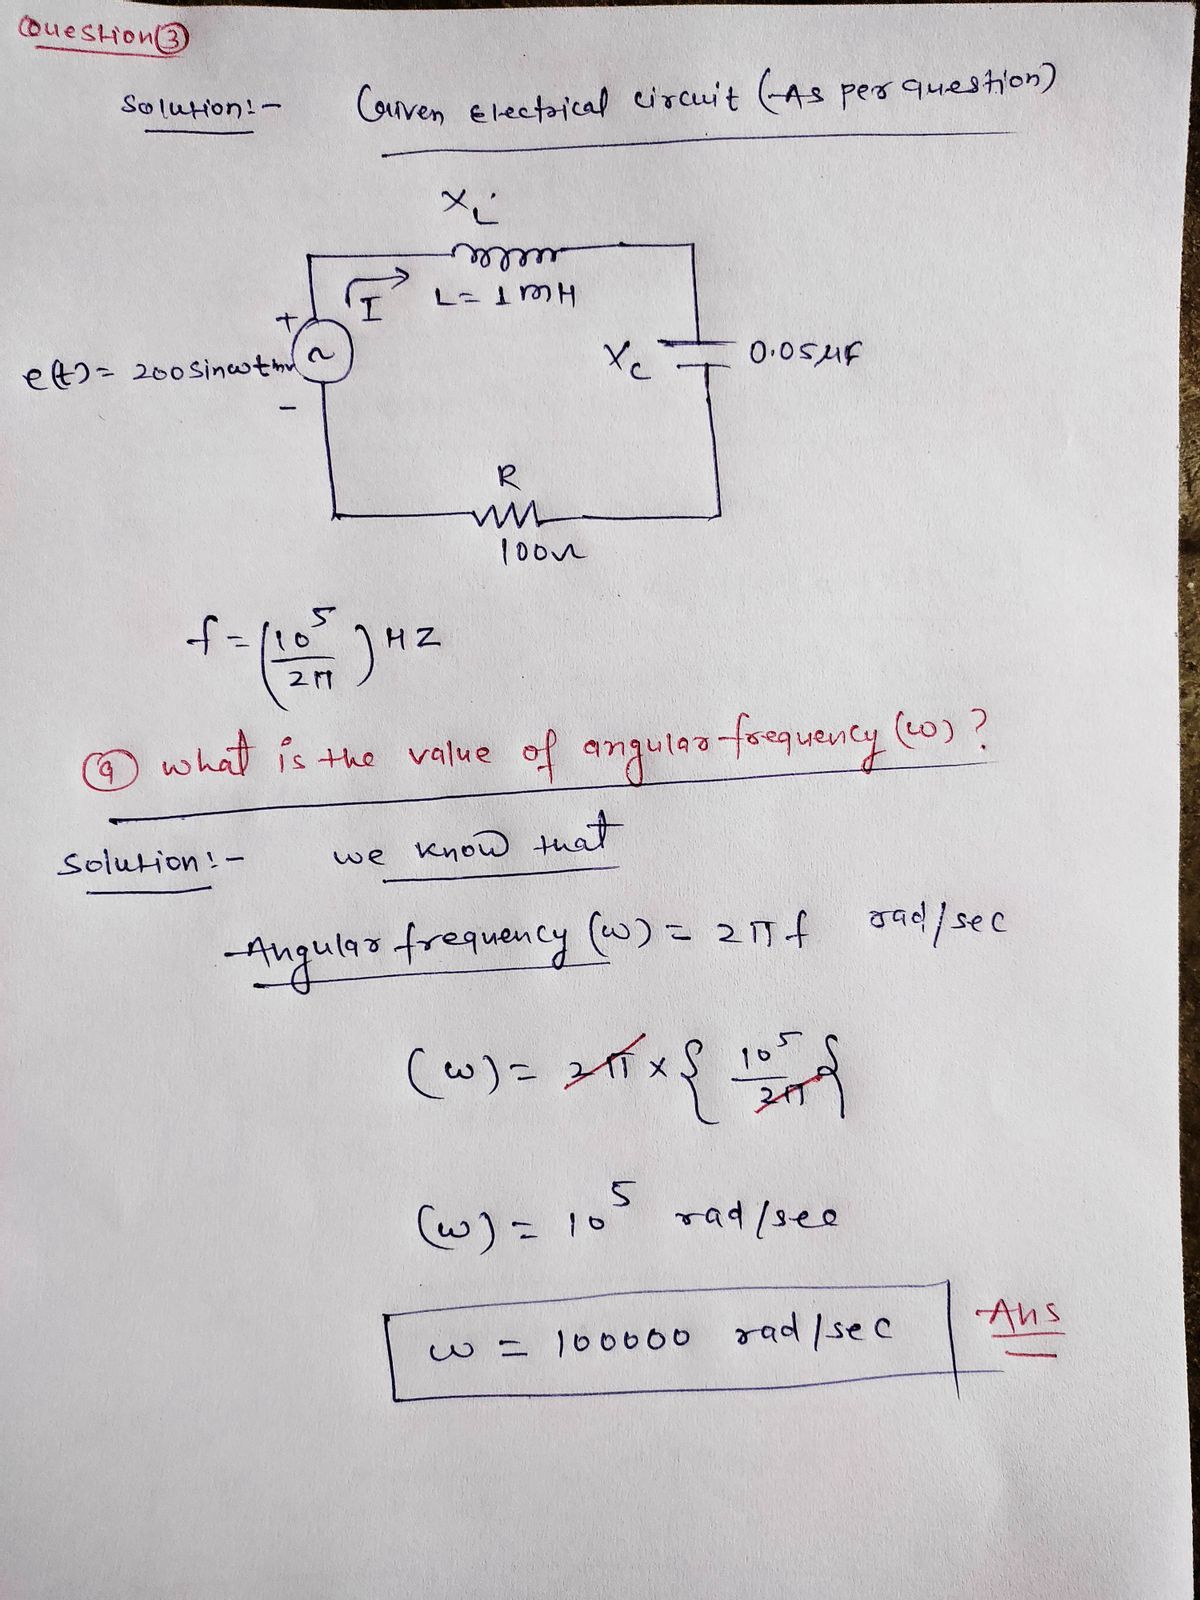 Question (3)
Solution:- Given Electrical circuit (As per question)
X_L
I L = 1 mH
+
e(t) = 200 Sinωt mv ~
-
X_C 0.05 μF
R
100Ω
f = (10^5 / 2π) HZ
(a) What is the value of angular frequency (ω) ?
Solution:- we know that
Angular frequency (ω) = 2πf rad/sec
(ω) = 2π × { 10^5 / 2π }
(ω) = 10^5 rad/sec
ω = 100000 rad/sec Ans